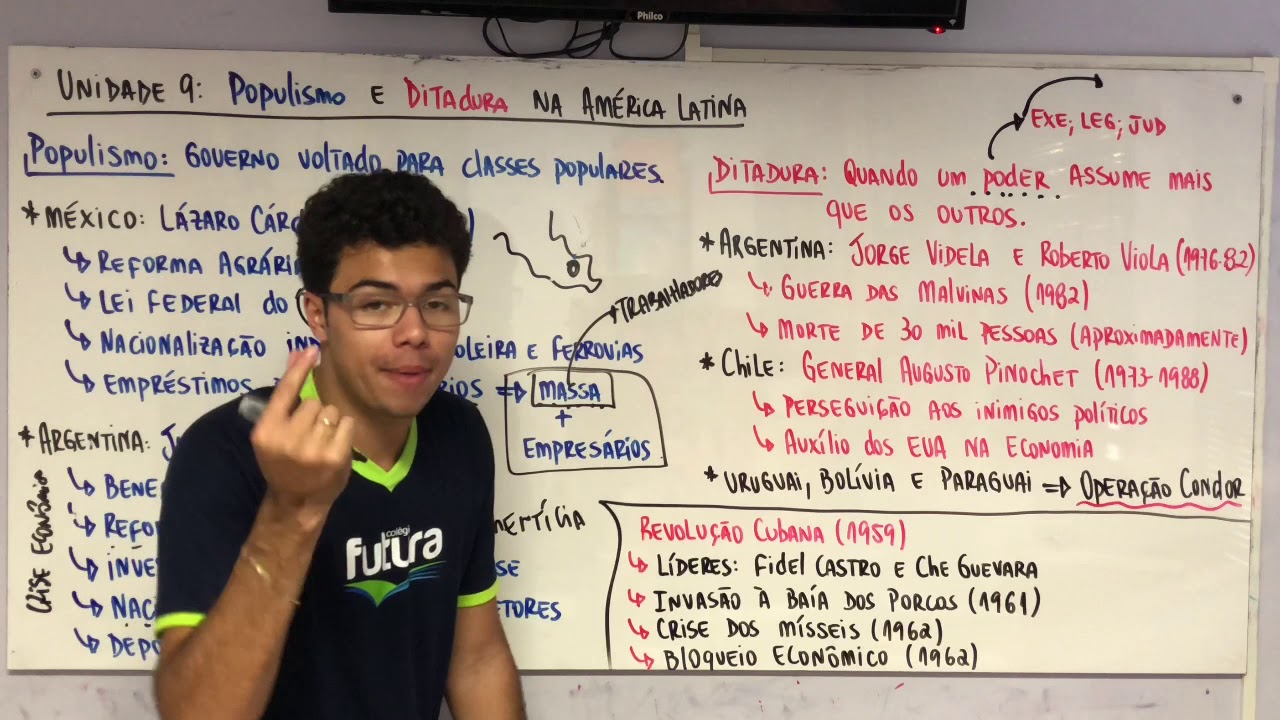 Philco
UNIDADE 9: POPULISMO E DITADURA NA AMÉRICA LATINA
POPULISMO: GOVERNO VOLTADO PARA CLASSES POPULARES.
* MÉXICO: LÁZARO
↳ REFORMA
↳ LEI FEDERAL DO
↳ NACIONALIZAÇÃO E FERROVIAS
↳ EMPRÉSTIMOS ⇒ MASSA
+
EMPRESÁRIOS
TRABALHADORES
* ARGENTINA:
CRISE
↳
↳
↳
↳
↳
colégi
futura
EXE; LEG; JUD
DITADURA: QUANDO UM PODER ASSUME MAIS
QUE OS OUTROS.
* ARGENTINA: JORGE VIDELA E ROBERTO VIOLA (1976-82)
↳ GUERRA DAS MALVINAS (1982)
↳ MORTE DE 30 MIL PESSOAS (APROXIMADAMENTE)
* CHILE: GENERAL AUGUSTO PINOCHET (1973-1988)
↳ PERSEGUIÇÃO AOS INIMIGOS POLÍTICOS
↳ AUXÍLIO DOS EUA NA ECONOMIA
* URUGUAI, BOLÍVIA E PARAGUAI ⇒ OPERAÇÃO CONDOR
REVOLUÇÃO CUBANA (1959)
↳ LÍDERES: FIDEL CASTRO E CHE GUEVARA
↳ INVASÃO À BAÍA DOS PORCOS (1961)
↳ CRISE DOS MÍSSEIS (1962)
↳ BLOQUEIO ECONÔMICO (1962)